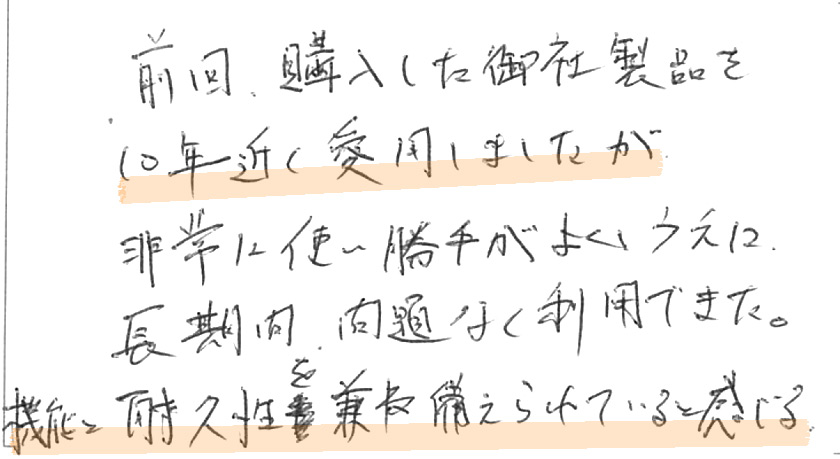 前回、購入した御社製品を
10年近く愛用しましたが
非常に使い勝手がよいうえに、
長期間、問題なく利用できた。
機能と耐久性を兼ね備えられていると感じる。